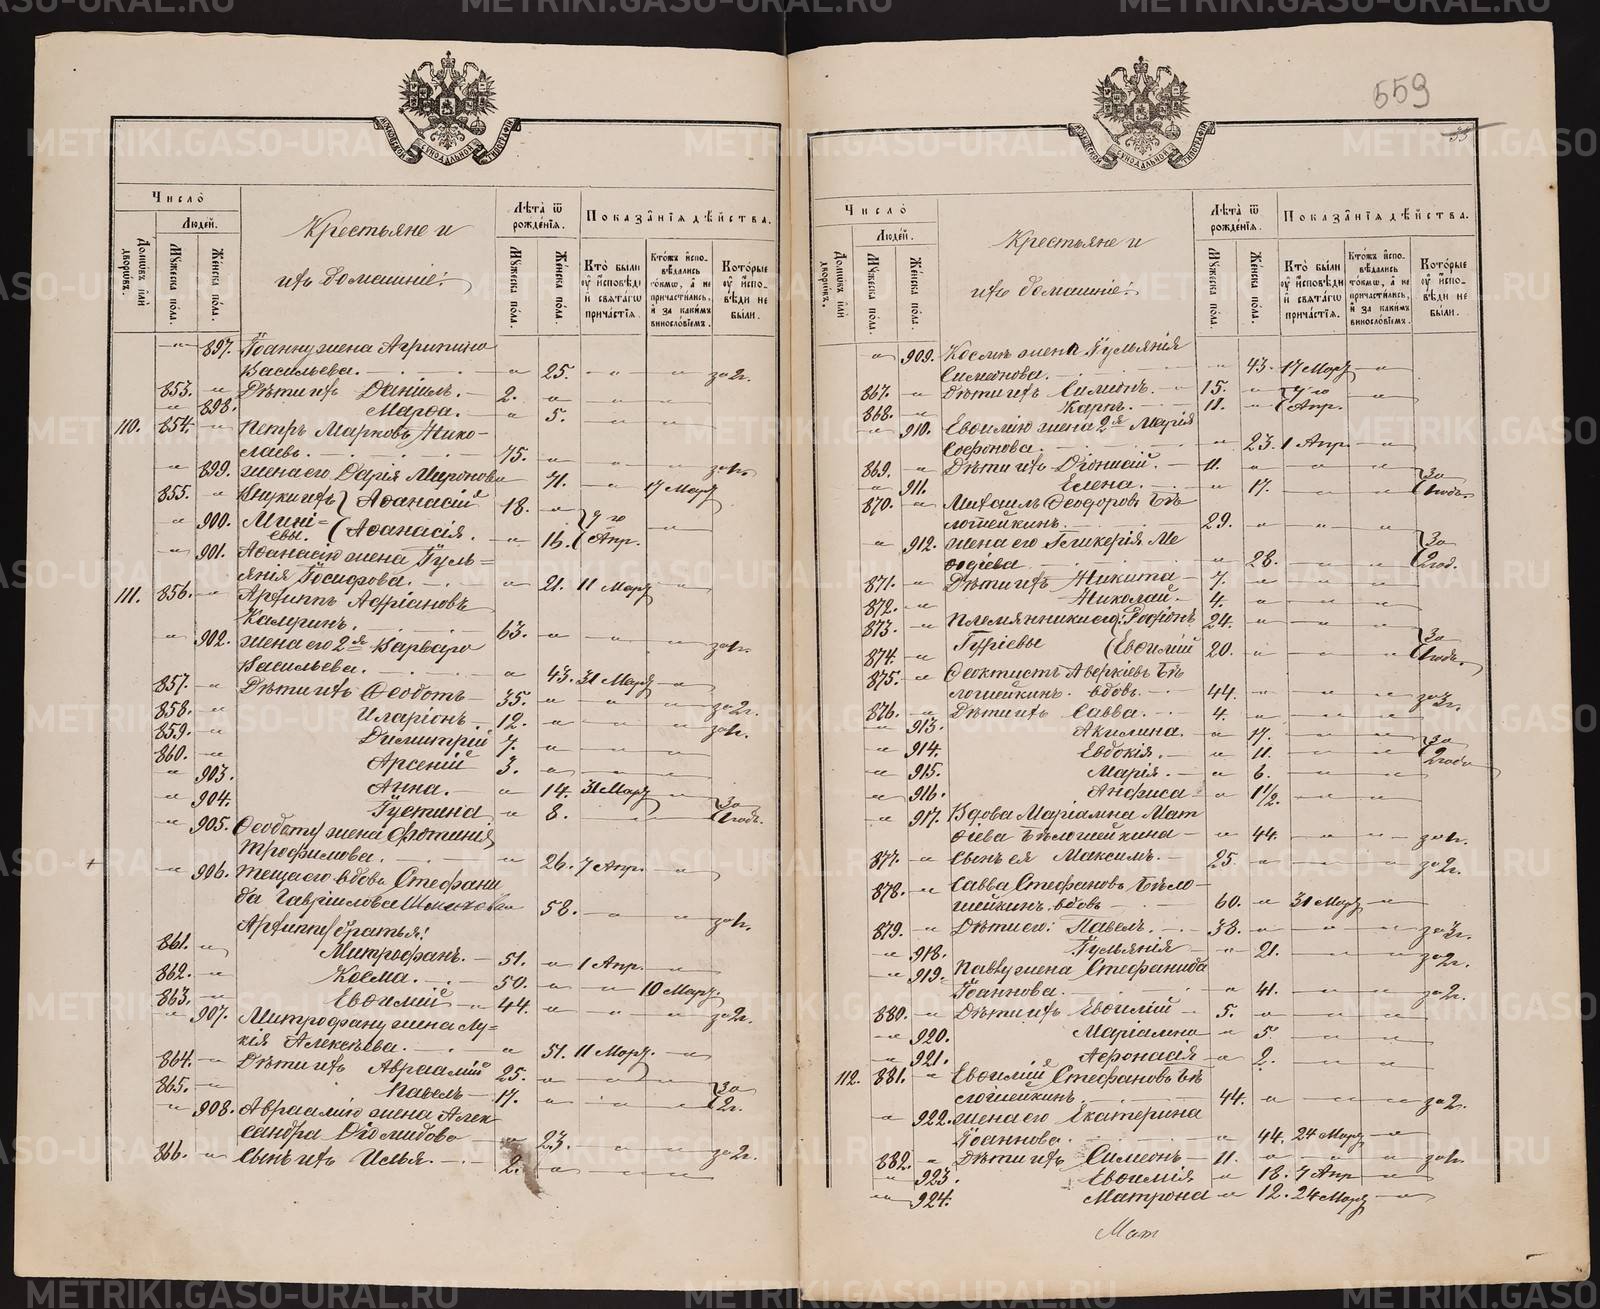 559
55
МОСКОВСКОЙ СУНОДАЛЬНОЙ ТИПОГРАФІИ
Число
Людей.
Домовъ или дворовъ.
Мужеска пола.
Женска пола.
Крестьяне и
ихъ домашніе:
Лѣта ѿ рожденія.
Мужеска пола.
Женска пола.
Показанія дѣйства.
Кто были оу исповѣди и святагѡ причастія.
Ктожъ исповѣдались токмѡ, а не причастились, и за какимъ винословіемъ.
Которые оу исповѣди не были.
" 897. Іоанну жена Агрипина
Васильева. " 25. " " за 2г.
853. " Дѣти ихъ Даніилъ. 2. "
" 898. Марѳа. " 5.
110. 854. " Петръ Марковъ Нико-
лаевъ. 75. " " за 1г.
" 899. жена его Дарія Миронова " 71. " 17 Март
855. " Внуки ихъ Аѳанасій 18. "
" 900. Мині- Аѳанасія. " 16. 7го Апр. "
евы.
" 901. Аѳанасію жена Іуль-
янія Іосифова. " 21. 11 Март "
111. 856. " Архиппъ Адріановъ
Калгинъ. 63. " " за 1г.
" 902. жена его 2я Варвара
Васильева. " 43. 31 Март "
857. " Дѣти ихъ Ѳеодотъ 35. " " за 2г.
858. " Иларіонъ. 12. " " за 1г.
859. " Димитрій 7. "
860. " Арсеній 3. "
" 903. Анна. " 14. 31 Март "
" 904. Іустина " 8. " за 1годъ.
" 905. Ѳеодоту жена Фотинія
Трофимова. " 26. 7 Апр. "
" 906. Теща его вдова Стефани
да Гавріилова " 58. " " за 1г.
Архиппу братья:
861. " Митрофанъ. 51. " 1 Апр. "
862. " Косма. 50. " " 10 Март.
863. " Евѳимій 44. " " за 2г.
" 907. Митрофану жена Лу-
кія Алексѣева. " 51. 11 Март. "
864. " Дѣти ихъ Авраамій 25. "
865. " Павелъ 17. " " за 2г.
" 908. Авраамію жена Алек-
сандра Діомидова " 23. " " за 2г.
866. " Сынъ ихъ Илья. 2. "
Число
Людей.
Домовъ или дворовъ.
Мужеска пола.
Женска пола.
Крестьяне и
ихъ домашніе:
Лѣта ѿ рожденія.
Мужеска пола.
Женска пола.
Показанія дѣйства.
Кто были оу исповѣди и святагѡ причастія.
Ктожъ исповѣдались токмѡ, а не причастились, и за какимъ винословіемъ.
Которые оу исповѣди не были.
" 909. Космы жена Іульянія
Симеонова. " 43. 17 Март "
867. " Дѣти ихъ Симеонъ. 15. "
868. " Карпъ. 11. " 7го Апр. "
" 910. Евѳимію жена 2я Марія
Софонова. " 23. 1 Апр. "
869. " Дѣти ихъ Діонисій. 11. "
" 911. Елена. " 17. " за 1годъ.
870. " Михаилъ Ѳеодоровъ Бѣ
логшейкинъ. 29. "
" 912. жена его Гликерія Ме
ѳодіева " 28. " за 2год.
871. " Дѣти ихъ Никита 7. "
872. " Николай. 4. "
873. " Племянники его: Родіонъ 24. "
874. " Гуріевы Евѳимій 20. " за 1годъ.
875. " Ѳеоктистъ Аверкіевъ Бѣ
логшейкинъ. вдовъ. 44. " " за 3г.
876. " Дѣти ихъ Савва. 4. "
" 913. Акилина. " 17.
" 914. Евдокія. " 11. за 2года
" 915. Марія. " 6. "
" 916. Анфиса " 1½. "
" 917. Вдова Маріамна Мат
ѳіева Бѣлошейкина " 44. " " за 1г.
877. " Сынъ ея Максимъ. 25. " " за 2г.
878. " Савва Стефановъ Бѣло-
шейкинъ. вдовъ 60. " 31 Март "
879. " Дѣти его: Павелъ. 33. " " за 3г.
" 918. Іульянія " 21. " за 2г.
" 919. Павлу жена Стефанида
Іоаннова. " 41. " за 2г.
880. " Дѣти ихъ Евѳимій 5. "
" 920. Маріамна " 5.
" 921. Аѳонасія " 2.
112. 881. " Евѳимій Стефановъ Бѣ
логшейкинъ. 44. " " за 2г.
" 922. жена его Екатерина
Іоаннова. " 44. 24 Март "
882. " Дѣти ихъ Симеонъ 11. " " за 1г.
" 923. Евѳимія " 18. 7 Апр. "
" 924. Матрона " 12. 24 Март "
Мат
METRIKI.GASO-URAL.RU